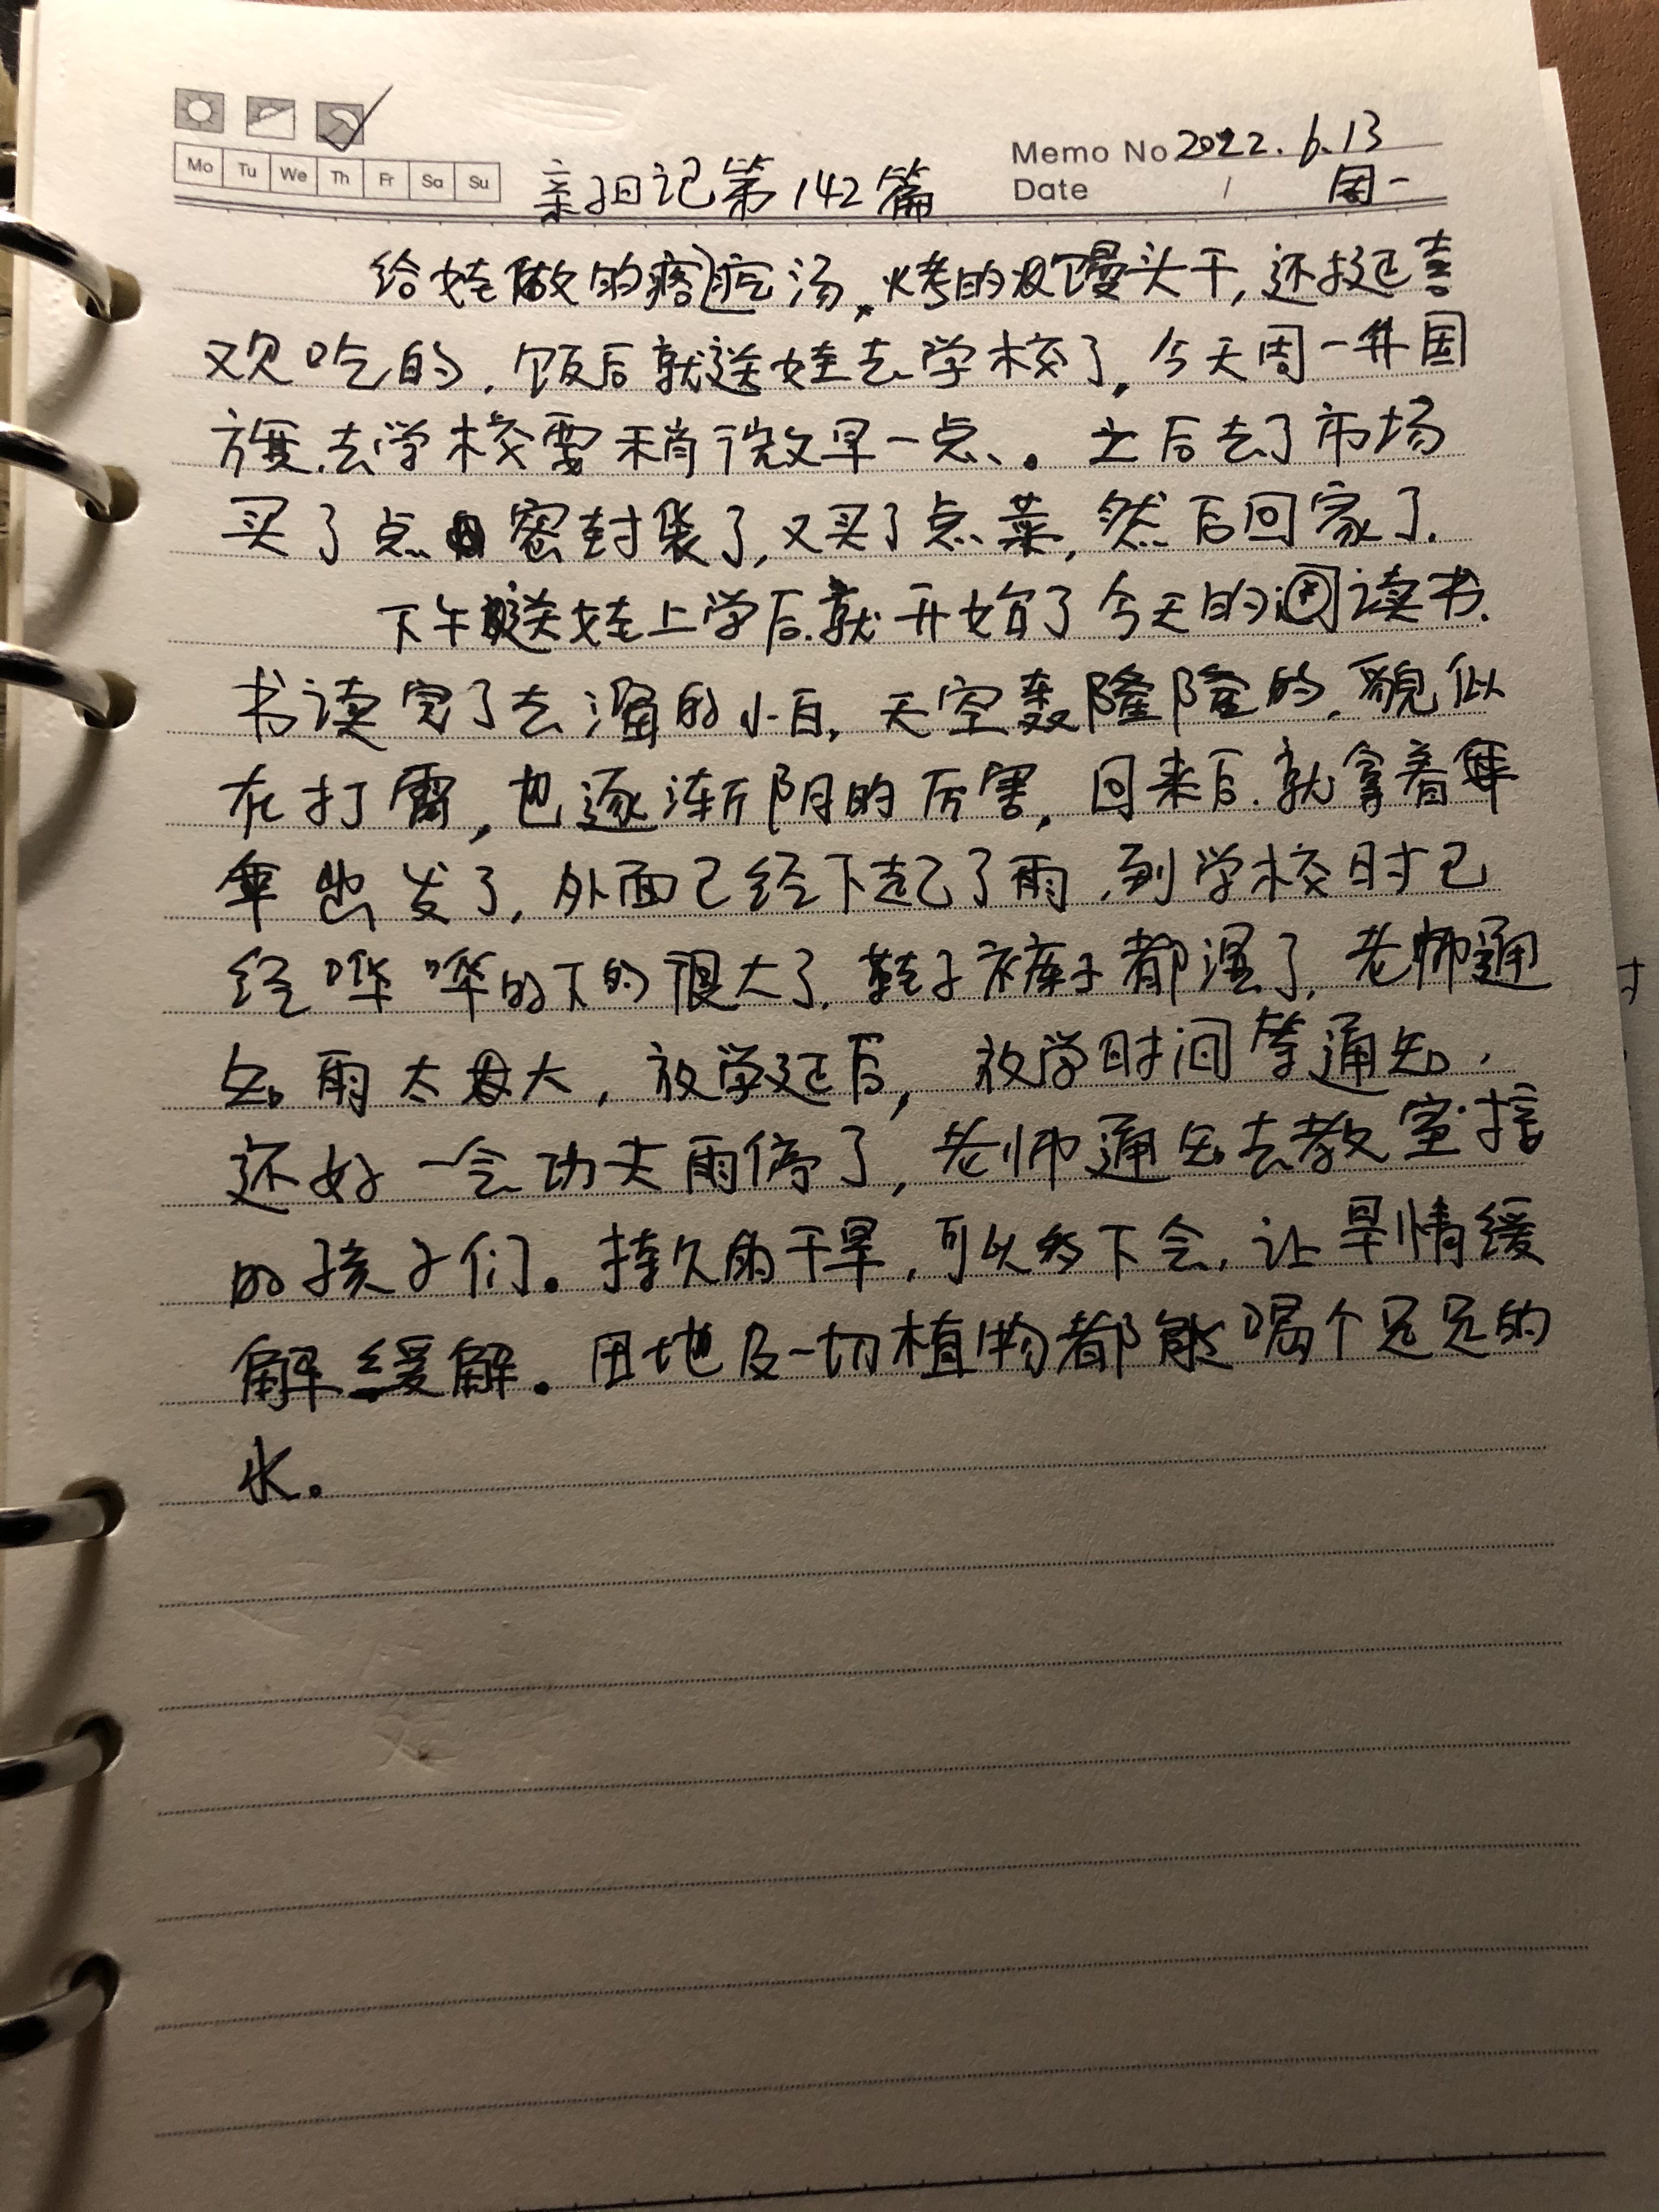 Mo Tu We Th Fr Sa Su
亲子日记第142篇
Memo No 2022.6.13
Date / 周一
给娃做的疙瘩汤,烤的馒头干,还挺喜
欢吃的,饭后就送娃去学校了,今天周一升国
旗,去学校要稍微早一点、。之后去了市场
买了点密封袋了,又买了点菜,然后回家了.
下午送娃上学后.就开始了今天的读书.
书读完了去溜的小白,天空轰隆隆的,貌似
在打雷,也逐渐阴的厉害,回来后.就拿着
伞出发了,外面已经下起了雨,到学校时已
经哗哗的下的很大了.鞋子裤子都湿了,老师通
知雨太大,放学延后,放学时间等通知,
还好一会功夫雨停了,老师通知去教室接
的孩子们。持久的干旱,可以多下会,让旱情缓
解缓解。田地及一切植物都能喝个足足的
水。